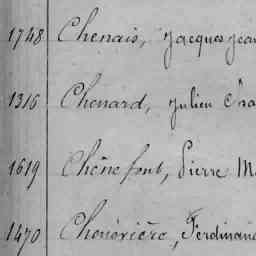 1748 Chenais, Jacques Jean
1316 Chenard, Julien Fra
1619 Chênefont, Pierre M
1470 Chenevière, Ferdinand